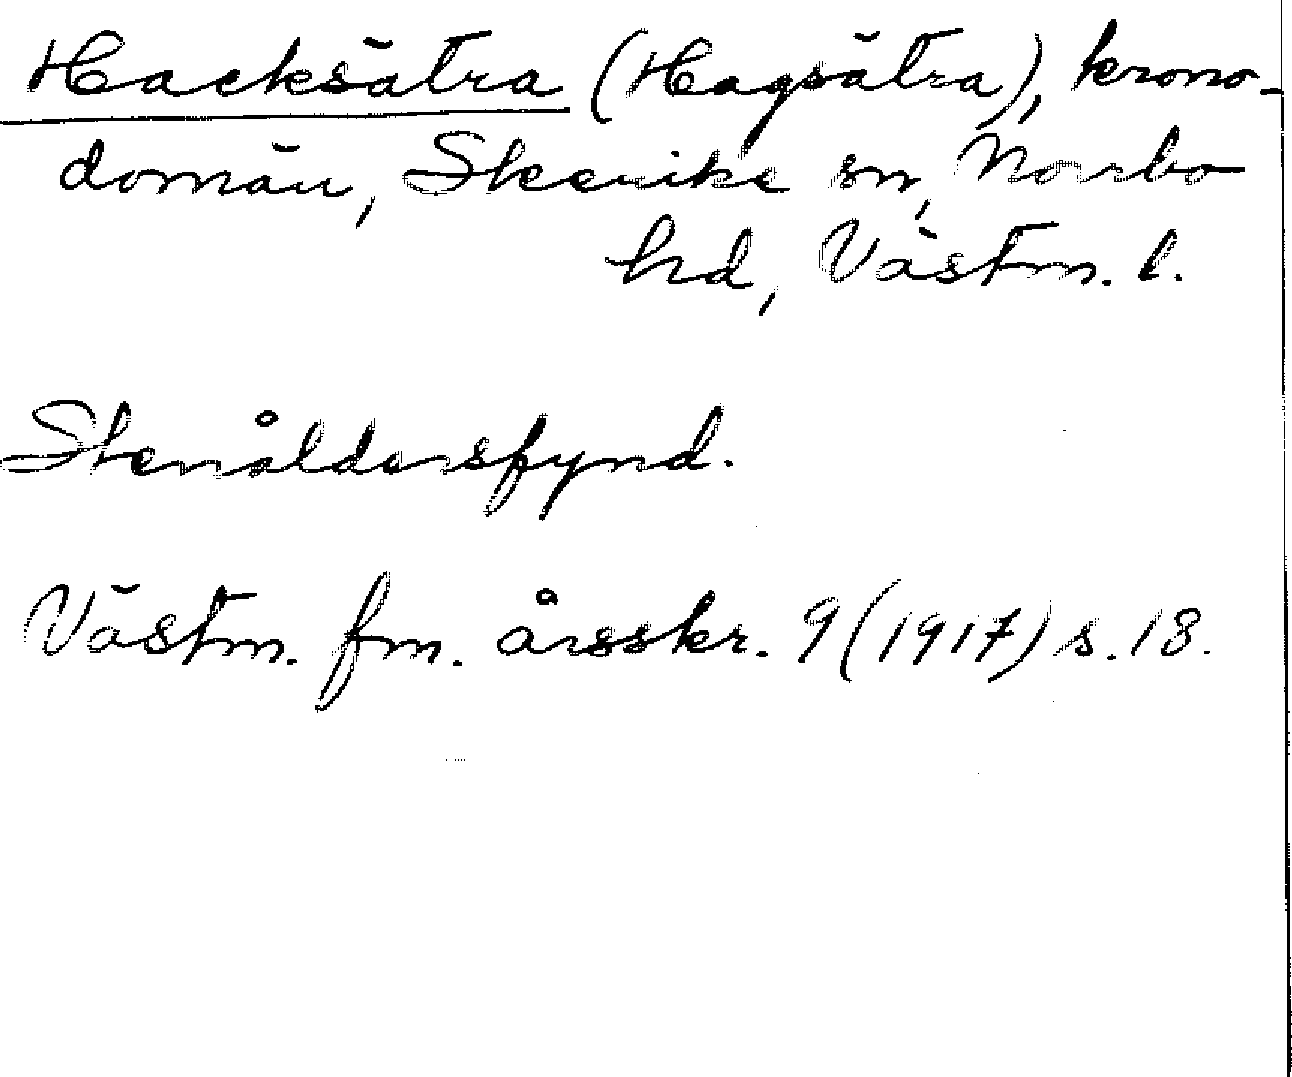 Hacksätra (Hagsätra), krono-
domän, Skerike sn, Norrbo
hd, Västm. l.
Stenåldersfynd.
Västm. fm. årsskr. 9 (1917) s. 18.